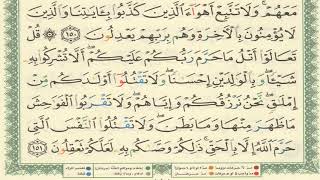 مَعَهُمْ ۚ وَلَا تَتَّبِعْ أَهْوَآءَ ٱلَّذِينَ كَذَّبُوا۟ بِـَٔايَٰتِنَا وَٱلَّذِينَ
لَا يُؤْمِنُونَ بِٱلْـَٔاخِرَةِ وَهُم بِرَبِّهِمْ يَعْدِلُونَ ١٥٠ ۞ قُلْ
تَعَالَوْا۟ أَتْلُ مَا حَرَّمَ رَبُّكُمْ عَلَيْكُمْ ۖ أَلَّا تُشْرِكُوا۟ بِهِۦ
شَيْـًٔا ۖ وَبِٱلْوَٰلِدَيْنِ إِحْسَٰنًا ۖ وَلَا تَقْتُلُوٓا۟ أَوْلَٰدَكُم مِّنْ
إِمْلَٰقٍ ۖ نَّحْنُ نَرْزُقُكُمْ وَإِيَّاهُمْ ۖ وَلَا تَقْرَبُوا۟ ٱلْفَوَٰحِشَ
مَا ظَهَرَ مِنْهَا وَمَا بَطَنَ ۖ وَلَا تَقْتُلُوا۟ ٱلنَّفْسَ ٱلَّتِى
حَرَّمَ ٱللَّهُ إِلَّا بِٱلْحَقِّ ۚ ذَٰلِكُمْ وَصَّىٰكُم بِهِۦ لَعَلَّكُمْ تَعْقِلُونَ ١٥١